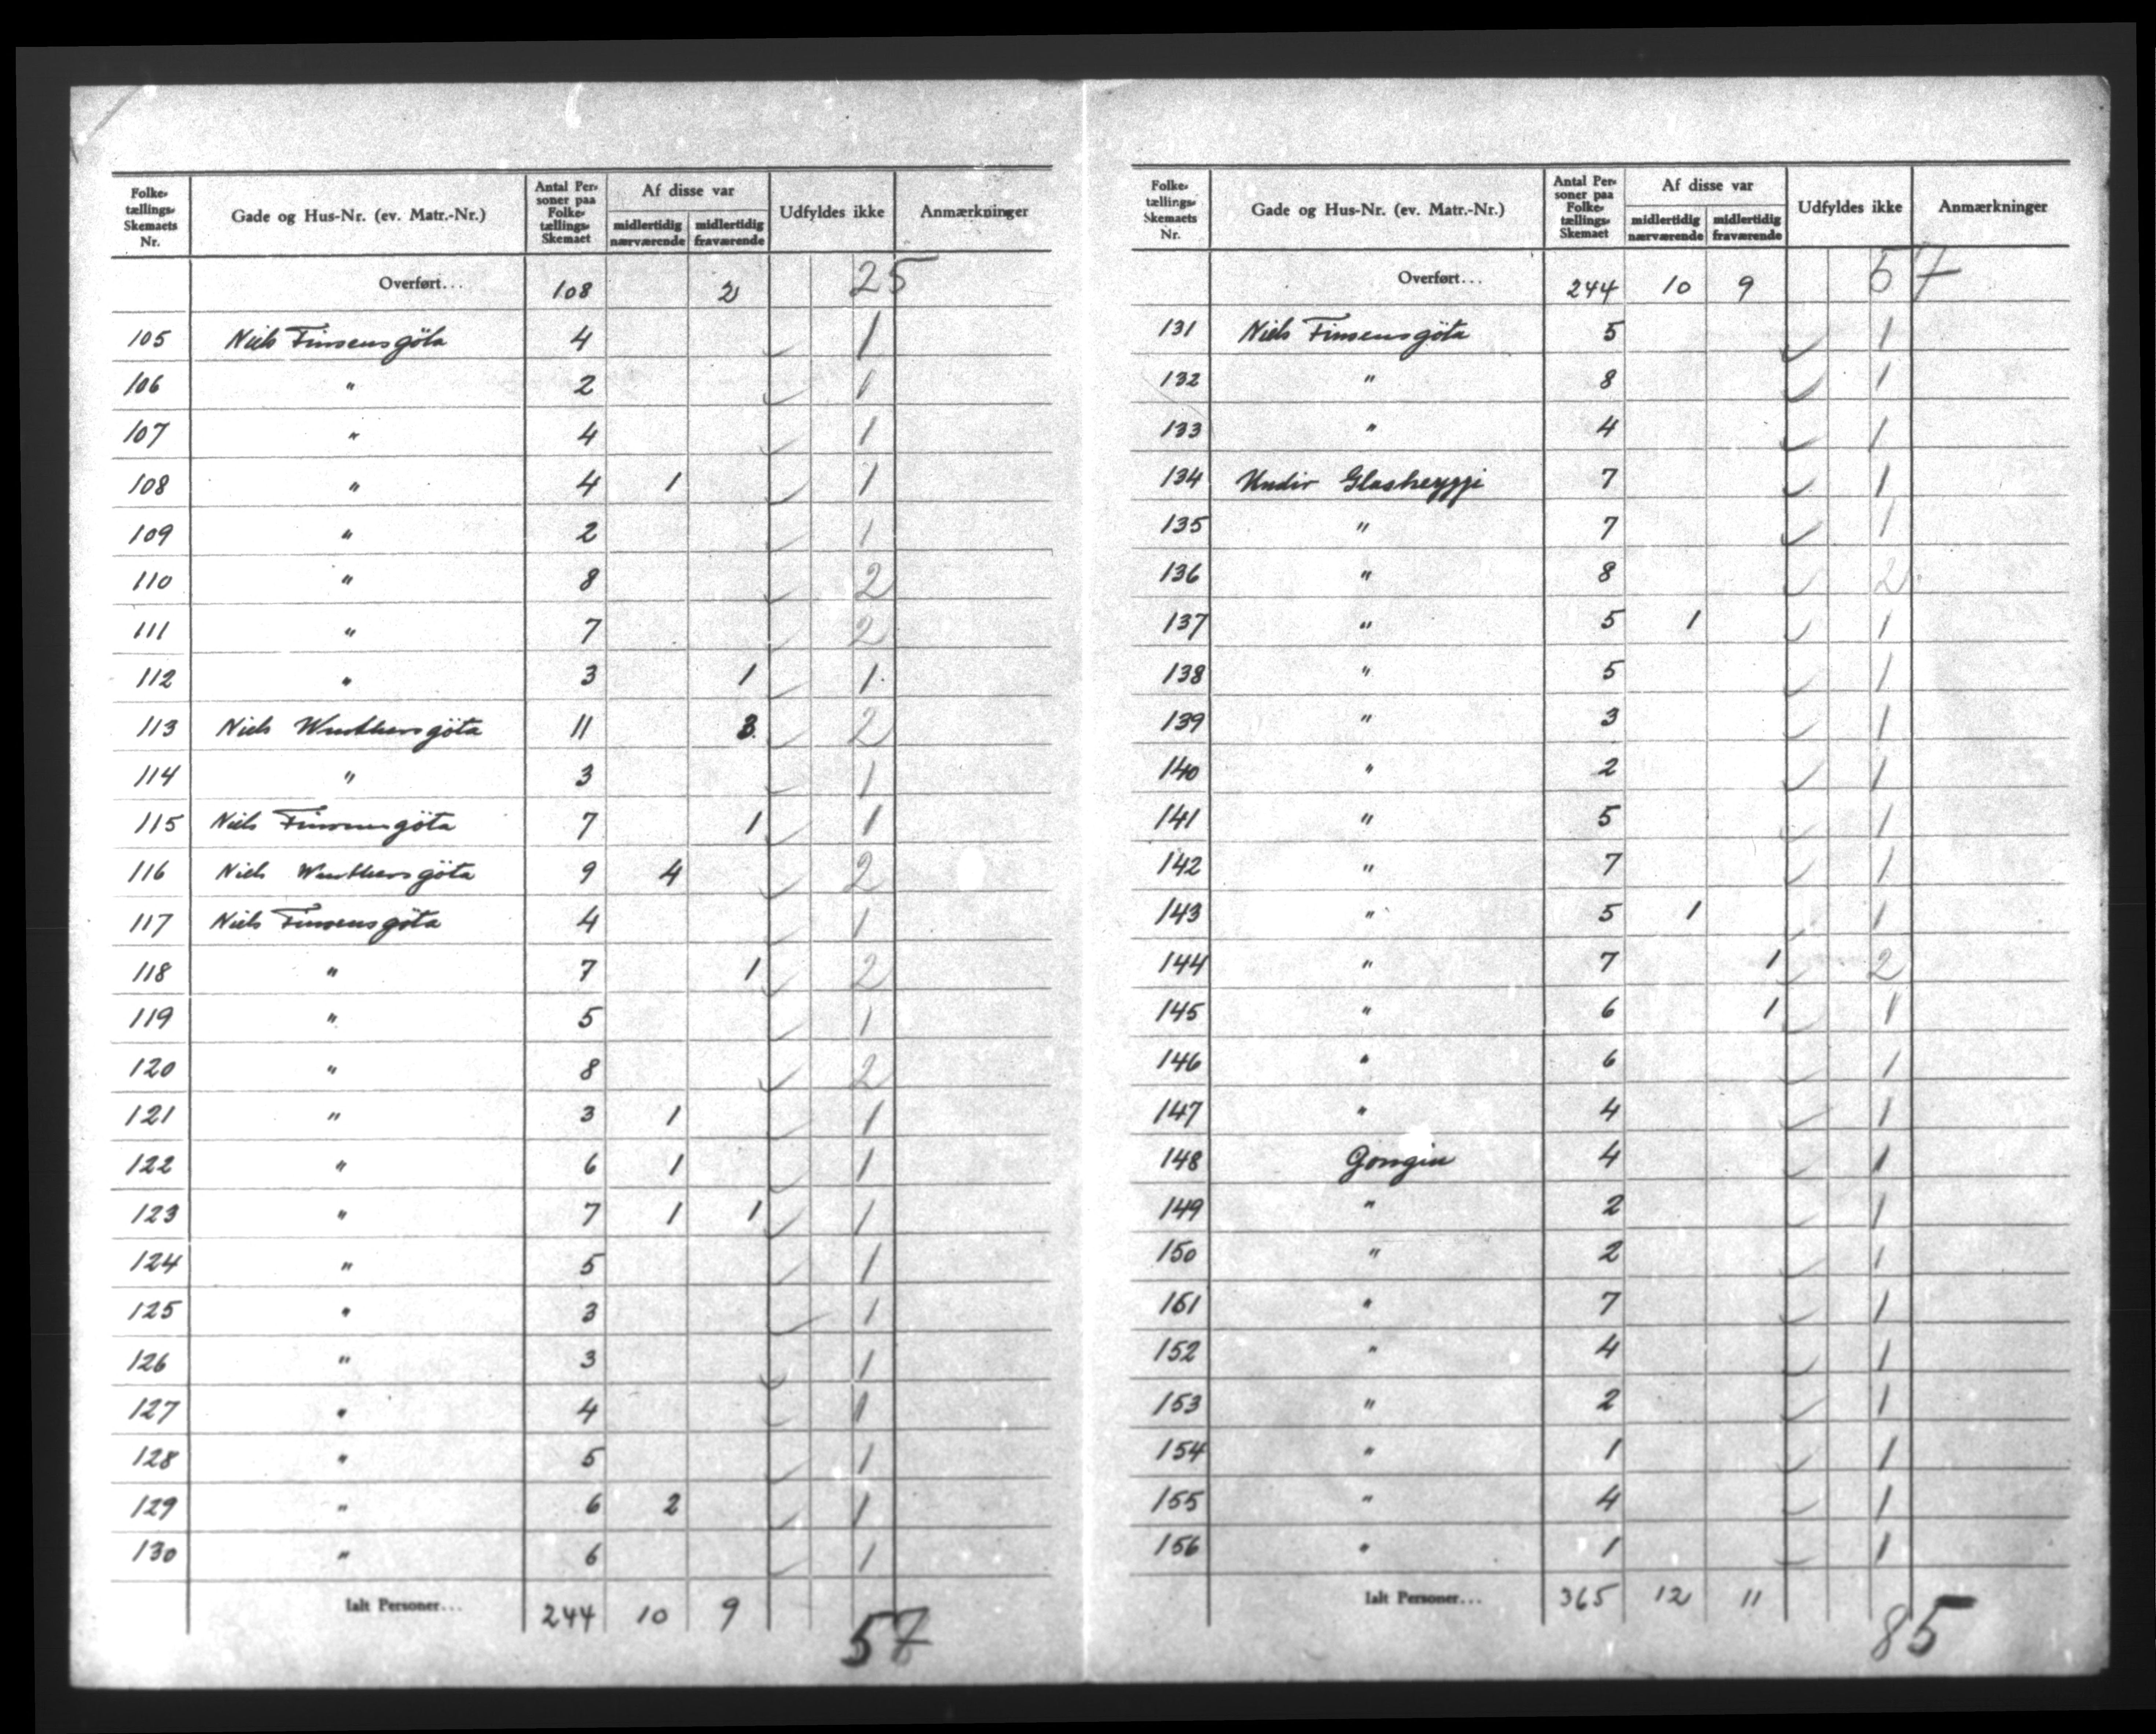 Folke-tællings-Skemaets Nr. Gade og Hus-Nr. (ev. Matr.-Nr.) Antal Personer paa Folke-tællings-Skemaet Af disse var midlertidig nærværende midlertidig fraværende Udfyldes ikke Anmærkninger
Overført... 108 2 25
105 Niels Finsensgöta 4 1
106 " 2 1
107 " 4 1
108 " 4 1 1
109 " 2 1
110 " 8 2
111 " 7 2
112 " 3 1 1
113 Niels Winthersgöta 11 3 2
114 " 3 1
115 Niels Finsensgöta 7 1 1
116 Niels Winthersgöta 9 4 2
117 Niels Finsensgöta 4 1
118 " 7 1 2
119 " 5 1
120 " 8 2
121 " 3 1 1
122 " 6 1 1
123 " 7 1 1 1
124 " 5 1
125 " 3 1
126 " 3 1
127 " 4 1
128 " 5 1
129 " 6 2 1
130 " 6 1
Ialt Personer... 244 10 9 57
Folke-tællings-Skemaets Nr. Gade og Hus-Nr. (ev. Matr.-Nr.) Antal Personer paa Folke-tællings-Skemaet Af disse var midlertidig nærværende midlertidig fraværende Udfyldes ikke Anmærkninger
Overført... 244 10 9 57
131 Niels Finsensgöta 5 1
132 " 8 1
133 " 4 1
134 Undir Glasheyggi 7 1
135 " 7 1
136 " 8 2
137 " 5 1 1
138 " 5 1
139 " 3 1
140 " 2 1
141 " 5 1
142 " 7 1
143 " 5 1 1
144 " 7 1 2
145 " 6 1 1
146 " 6 1
147 " 4 1
148 Gongin 4 1
149 " 2 1
150 " 2 1
151 " 7 1
152 " 4 1
153 " 2 1
154 " 1 1
155 " 4 1
156 " 1 1
Ialt Personer... 365 12 11 85